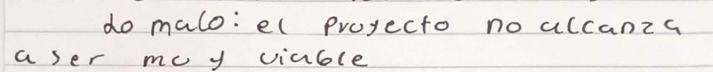 lo malo: el proyecto no alcanza
a ser muy viable